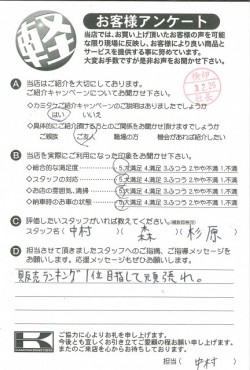 軽
お客様アンケート
当店では、お買い上げ頂いたお客様の声を可能
な限り現場に反映し、お客様により良い商品と
サービスを提供する事に努めています。
大変お手数ですが是非お声をお聞かせ下さい。
A 当店はご紹介を大切にしております。
ご紹介キャンペーンについてお聞かせ下さい。
はい いいえ
ご親族 ご友人 職場の方 機会があれば紹介したい
B 当店を実際にご利用になった印象をお聞かせ下さい。
◇総合的な満足度 5.大満足 4.満足 3.ふつう 2.やや不満 1.不満
◇スタッフの対応 5.大満足 4.満足 3.ふつう 2.やや不満 1.不満
◇お店の雰囲気、清掃 5.大満足 4.満足 3.ふつう 2.やや不満 1.不満
◇納車時のお車の状態 5.大満足 4.満足 3.ふつう 2.やや不満 1.不満
C 評価したいスタッフがいれば教えてください。
スタッフ名( 中村 )( 森 )( 杉原 )
D 担当させて頂きましたスタッフへのご指導、ご指導メッセージを
お願いします。応援メッセージもぜひお願いします。
販売ランキング1位目指して頑張れ。
K
ご協力に心よりお礼を申し上げます。
今後とも宜しくお引き立てご愛顧の程お願い申し上げます。
またのご来店を心からお待ちしております。
担当( 中村 )